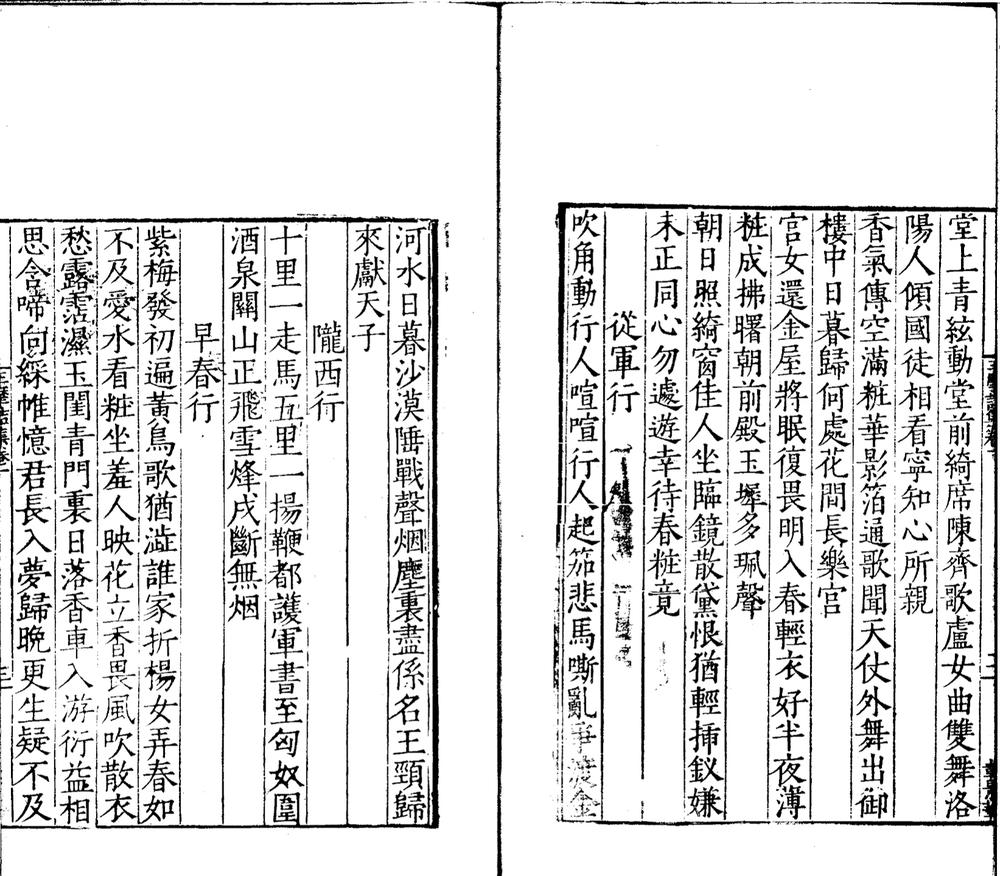 堂上青絃動堂前綺席陳齊歌盧女曲雙舞洛
陽人傾國徒相看寧知心所親
香氣傳空滿粧華影箔通歌聞天仗外舞出御
樓中日暮歸何處花間長樂宮
宮女還金屋將眠復畏明入春輕衣好半夜薄
粧成拂曙朝前殿玉墀多珮聲
朝日照綺窗佳人坐臨鏡散黛恨猶輕挿釵嫌
未正同心勿遽遊幸待春粧竟
從軍行
吹角動行人喧喧行人起笳悲馬嘶亂爭渡金
河水日暮沙漠陲戰聲烟塵裏盡係名王頸歸
來獻天子
隴西行
十里一走馬五里一揚鞭都護軍書至匈奴圍
酒泉關山正飛雪烽戍斷無烟
早春行
紫梅發初遍黃鳥歌猶澁誰家折楊女弄春如
不及愛水看粧坐羞人映花立香畏風吹散衣
愁露霑濕玉閨青門裏日落香車入游衍益相
思含啼向綵帷憶君長入夢歸晚更生疑不及